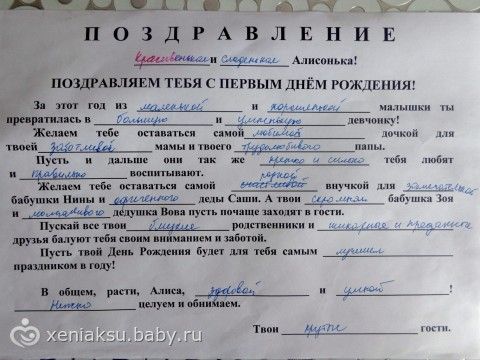 ПОЗДРАВЛЕНИЕ
Красивенькая и сладенькая Алисонька!
ПОЗДРАВЛЯЕМ ТЕБЯ С ПЕРВЫМ ДНЁМ РОЖДЕНИЯ!
За этот год из маленькой и малышки ты
превратилась в большую и девчонку!
Желаем тебе оставаться самой любимой дочкой для
твоей заботливой мамы и твоего трудолюбивого папы.
Пусть и дальше они так же крепко и сильно тебя любят
и правильно воспитывают.
родной
Желаем тебе оставаться самой счастливой внучкой для замечательной
бабушки Нины и деды Саши. А твои скромная бабушка Зоя
и молчаливого дедушка Вова пусть почаще заходят в гости.
Пускай все твои близкие родственники и шикарные и преданные
друзья балуют тебя своим вниманием и заботой.
Пусть твой День Рождения будет для тебя самым лучшим
праздником в году!
В общем, расти, Алиса, здоровой и умной !
Нежно целуем и обнимаем.
Твои крутые гости.
xeniaksu.baby.ru